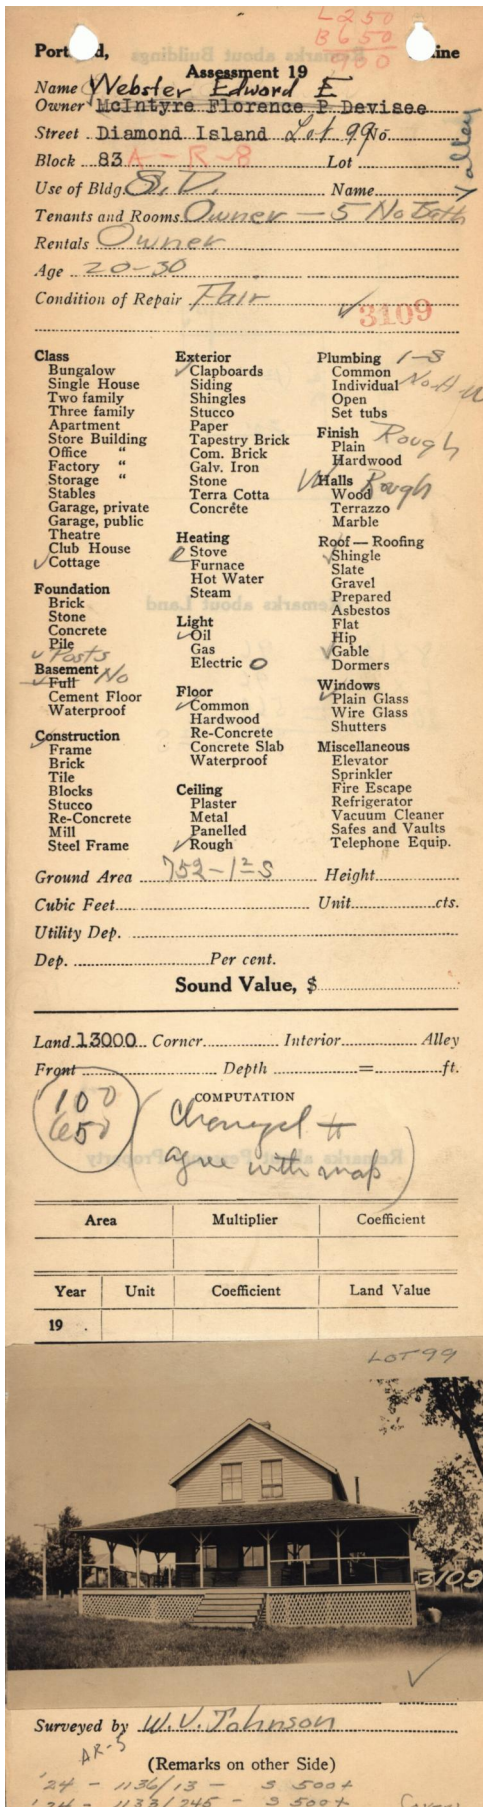 L 250
B 650
900
Assessment 19
Name Webster Edward E
Owner McIntyre Florence P Devisee
Street Diamond Island Lot 99 No.
Valley
Block 83 A-R-8 Lot
Use of Bldg. S.D. Name
Tenants and Rooms Owner - 5 No Bath
Rentals Owner
Age 20-30
Condition of Repair Fair
3109
Class
Bungalow
Single House
Two family
Three family
Apartment
Store Building
Office "
Factory "
Storage "
Stables
Garage, private
Garage, public
Theatre
Club House
✓ Cottage
Foundation
Brick
Stone
Concrete
Pile
✓ Posts
Basement No
Full
Cement Floor
Waterproof
Construction
✓ Frame
Brick
Tile
Blocks
Stucco
Re-Concrete
Mill
Steel Frame
Exterior
✓ Clapboards
Siding
Shingles
Stucco
Paper
Tapestry Brick
Com. Brick
Galv. Iron
Stone
Terra Cotta
Concrete
Heating
Stove
Furnace
Hot Water
Steam
Light
✓ Oil
Gas
Electric O
Floor
✓ Common
Hardwood
Re-Concrete
Concrete Slab
Waterproof
Ceiling
Plaster
Metal
Panelled
✓ Rough
Plumbing 1-S
Common
Individual
Open
Set tubs
Finish Rough
Plain
Hardwood
Halls Rough
Wood
Terrazzo
Marble
Roof — Roofing
✓ Shingle
Slate
Gravel
Prepared
Asbestos
Flat
Hip
✓ Gable
Dormers
Windows
✓ Plain Glass
Wire Glass
Shutters
Miscellaneous
Elevator
Sprinkler
Fire Escape
Refrigerator
Vacuum Cleaner
Safes and Vaults
Telephone Equip.
Ground Area 752-1½S Height
Cubic Feet Unit cts.
Utility Dep.
Dep. Per cent.
Sound Value, $
Land 13000 Corner Interior Alley
Front Depth = ft.
COMPUTATION
100
650
(Changed to
agree with map)
Area Multiplier Coefficient
Year Unit Coefficient Land Value
19 .
LOT 99
3109
Surveyed by W. V. Johnson
AR-5
(Remarks on other Side)
'24 - 1136/13 - S 500+
'24 - 1133/245 - S 500+